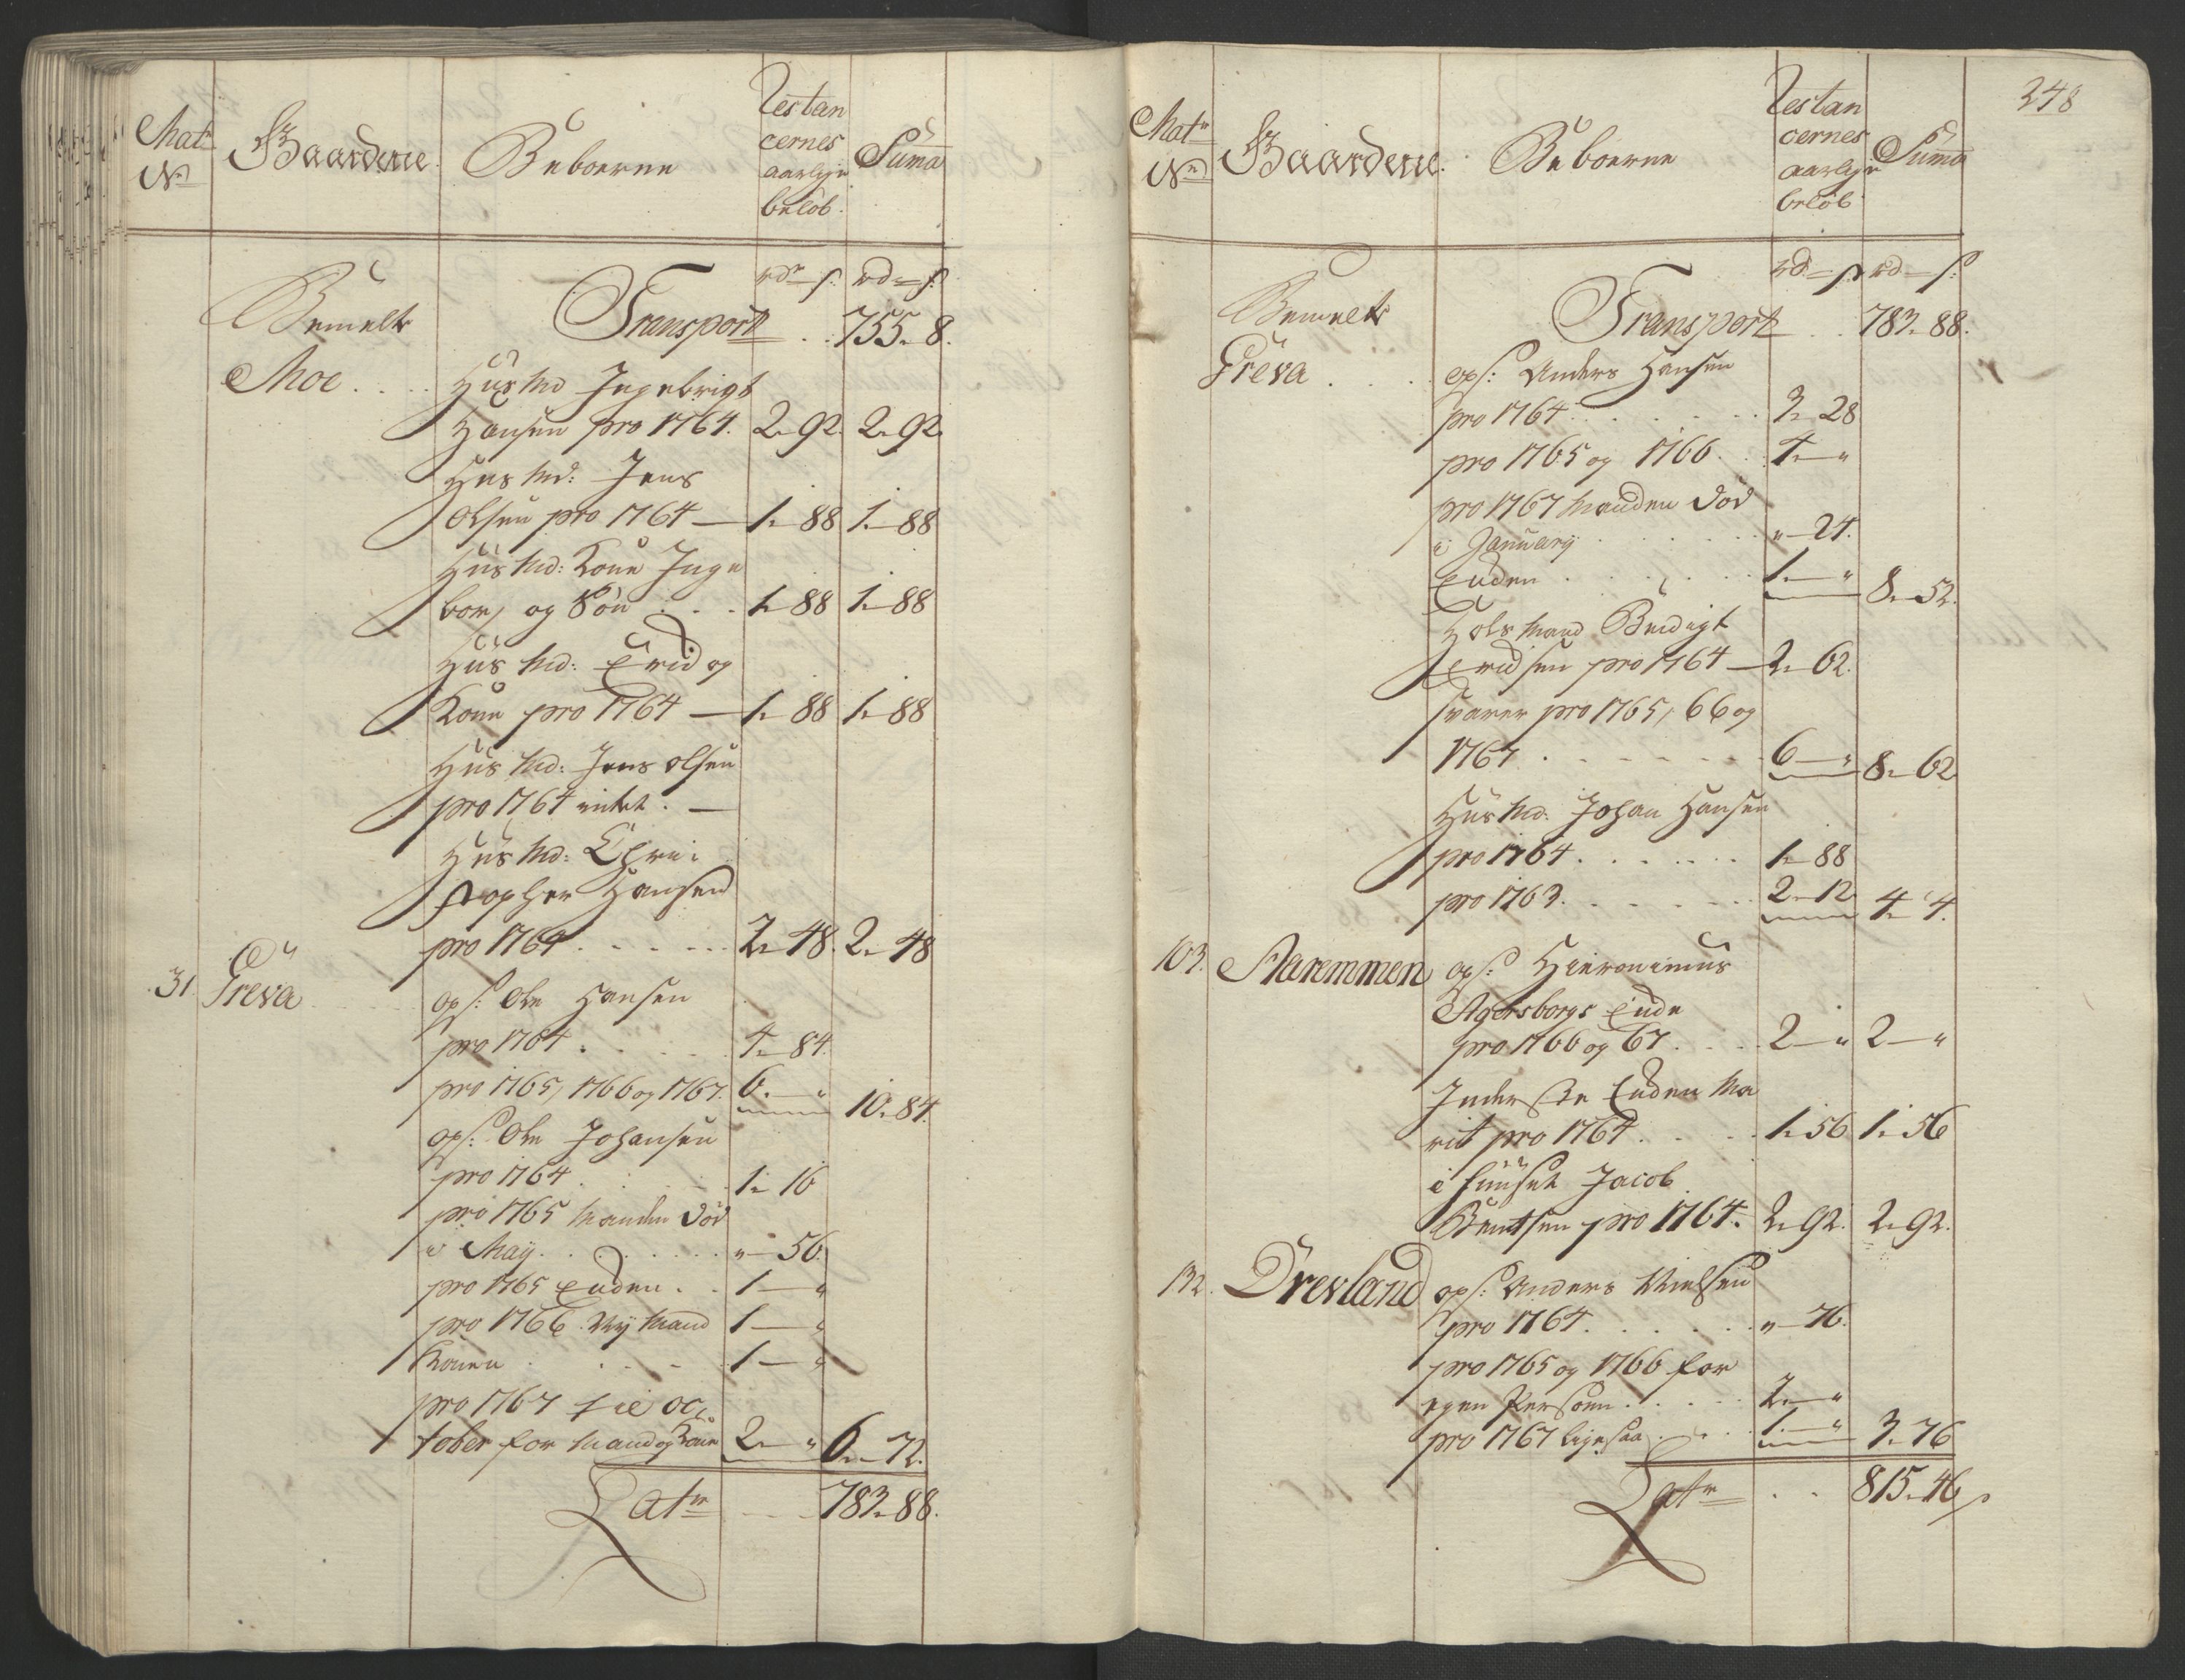 Mat
No
Gaardene.
Beboerne
Restan
cernes
aarlige
beløb.
Suma
rdr ſ. rd ſ.
Bemelte Transport . . 755. 8.
Moe . . . Huusmd Ingebrigt
Hansen pro 1764. 2. 92. 2. 92.
Husmd: Jens
Olsen pro 1764 — 1. 88 1. 88
Husmd: Kone Inge
bor, og Søn . . . 1. 88 1. 88
Husmd: Erid og
Kone pro 1764 — 1. 88 1. 88
Husmd: Jens Olsen
pro 1764 intet. —
Husmd: Chri-
stopher Hansen
pro 1764 . . . . . 2. 48. 2. 48
31. Greva ops: Ole Hansen
pro 1764 . . . . . 4. 84.
pro 1765, 1766 og 1767. 6. — " 10. 84.
ops: Ole Johansen
pro 1764 . . . . 1. 16
pro 1765 Manden død
i Maÿ . . . . . . " — 56.
pro 1765 Enken . . 1 — "
pro 1766 Nÿ Mand 1 — "
Konen . . . . 1 — "
pro 1767 til oc-
tober for Mand og Kone 2. — " 6. — 72.
Latr . . . 783. 88.
248
Matr
No
Gaardene.
Beboerne
Restan
cernes
aarlige
beløb
Suma
rd — ſ. rd — ſ:
Bemelte Transport . . 783. 88.
Greva . . . . ops: Anders Hansen
pro 1764 . . . . . . 3. 28
pro 1765 og 1766 . . 4. — "
pro 1767 Manden død
i Januarÿ . . . . . . " — 24.
Enken . . . . . . 1. — " 8. — 52.
Huusmand Bendigt
Eridsen pro 1764 — 2. 62.
svarer pro 1765, 66 og
1767 . . . . . . . 6 — " 8. — 62
Husmd. Johan Hansen
pro 1764 . . . . . . 1. 88
pro 1763. . . . . . . 2. 12 4. 4.
103. Aaremmen ops: Hieronimus
Agersborgs Enke
pro 1766 og 67 . . . . 2 — " 2 — "
Inderste Enken Ma
rit pro 1764 . . . . 1. 56 1. 56
i Huuset Jacob
Bentsen pro 1764. 2. 92. 2. 92.
132. Drevland ops: Anders Nielsen
pro 1764. . . . . . " — 76.
pro 1765 og 1766 for
egen Person . . . . . 2. — "
pro 1767 ligesaa . . . 1. — " 3. 76
Latr . . 815. 46